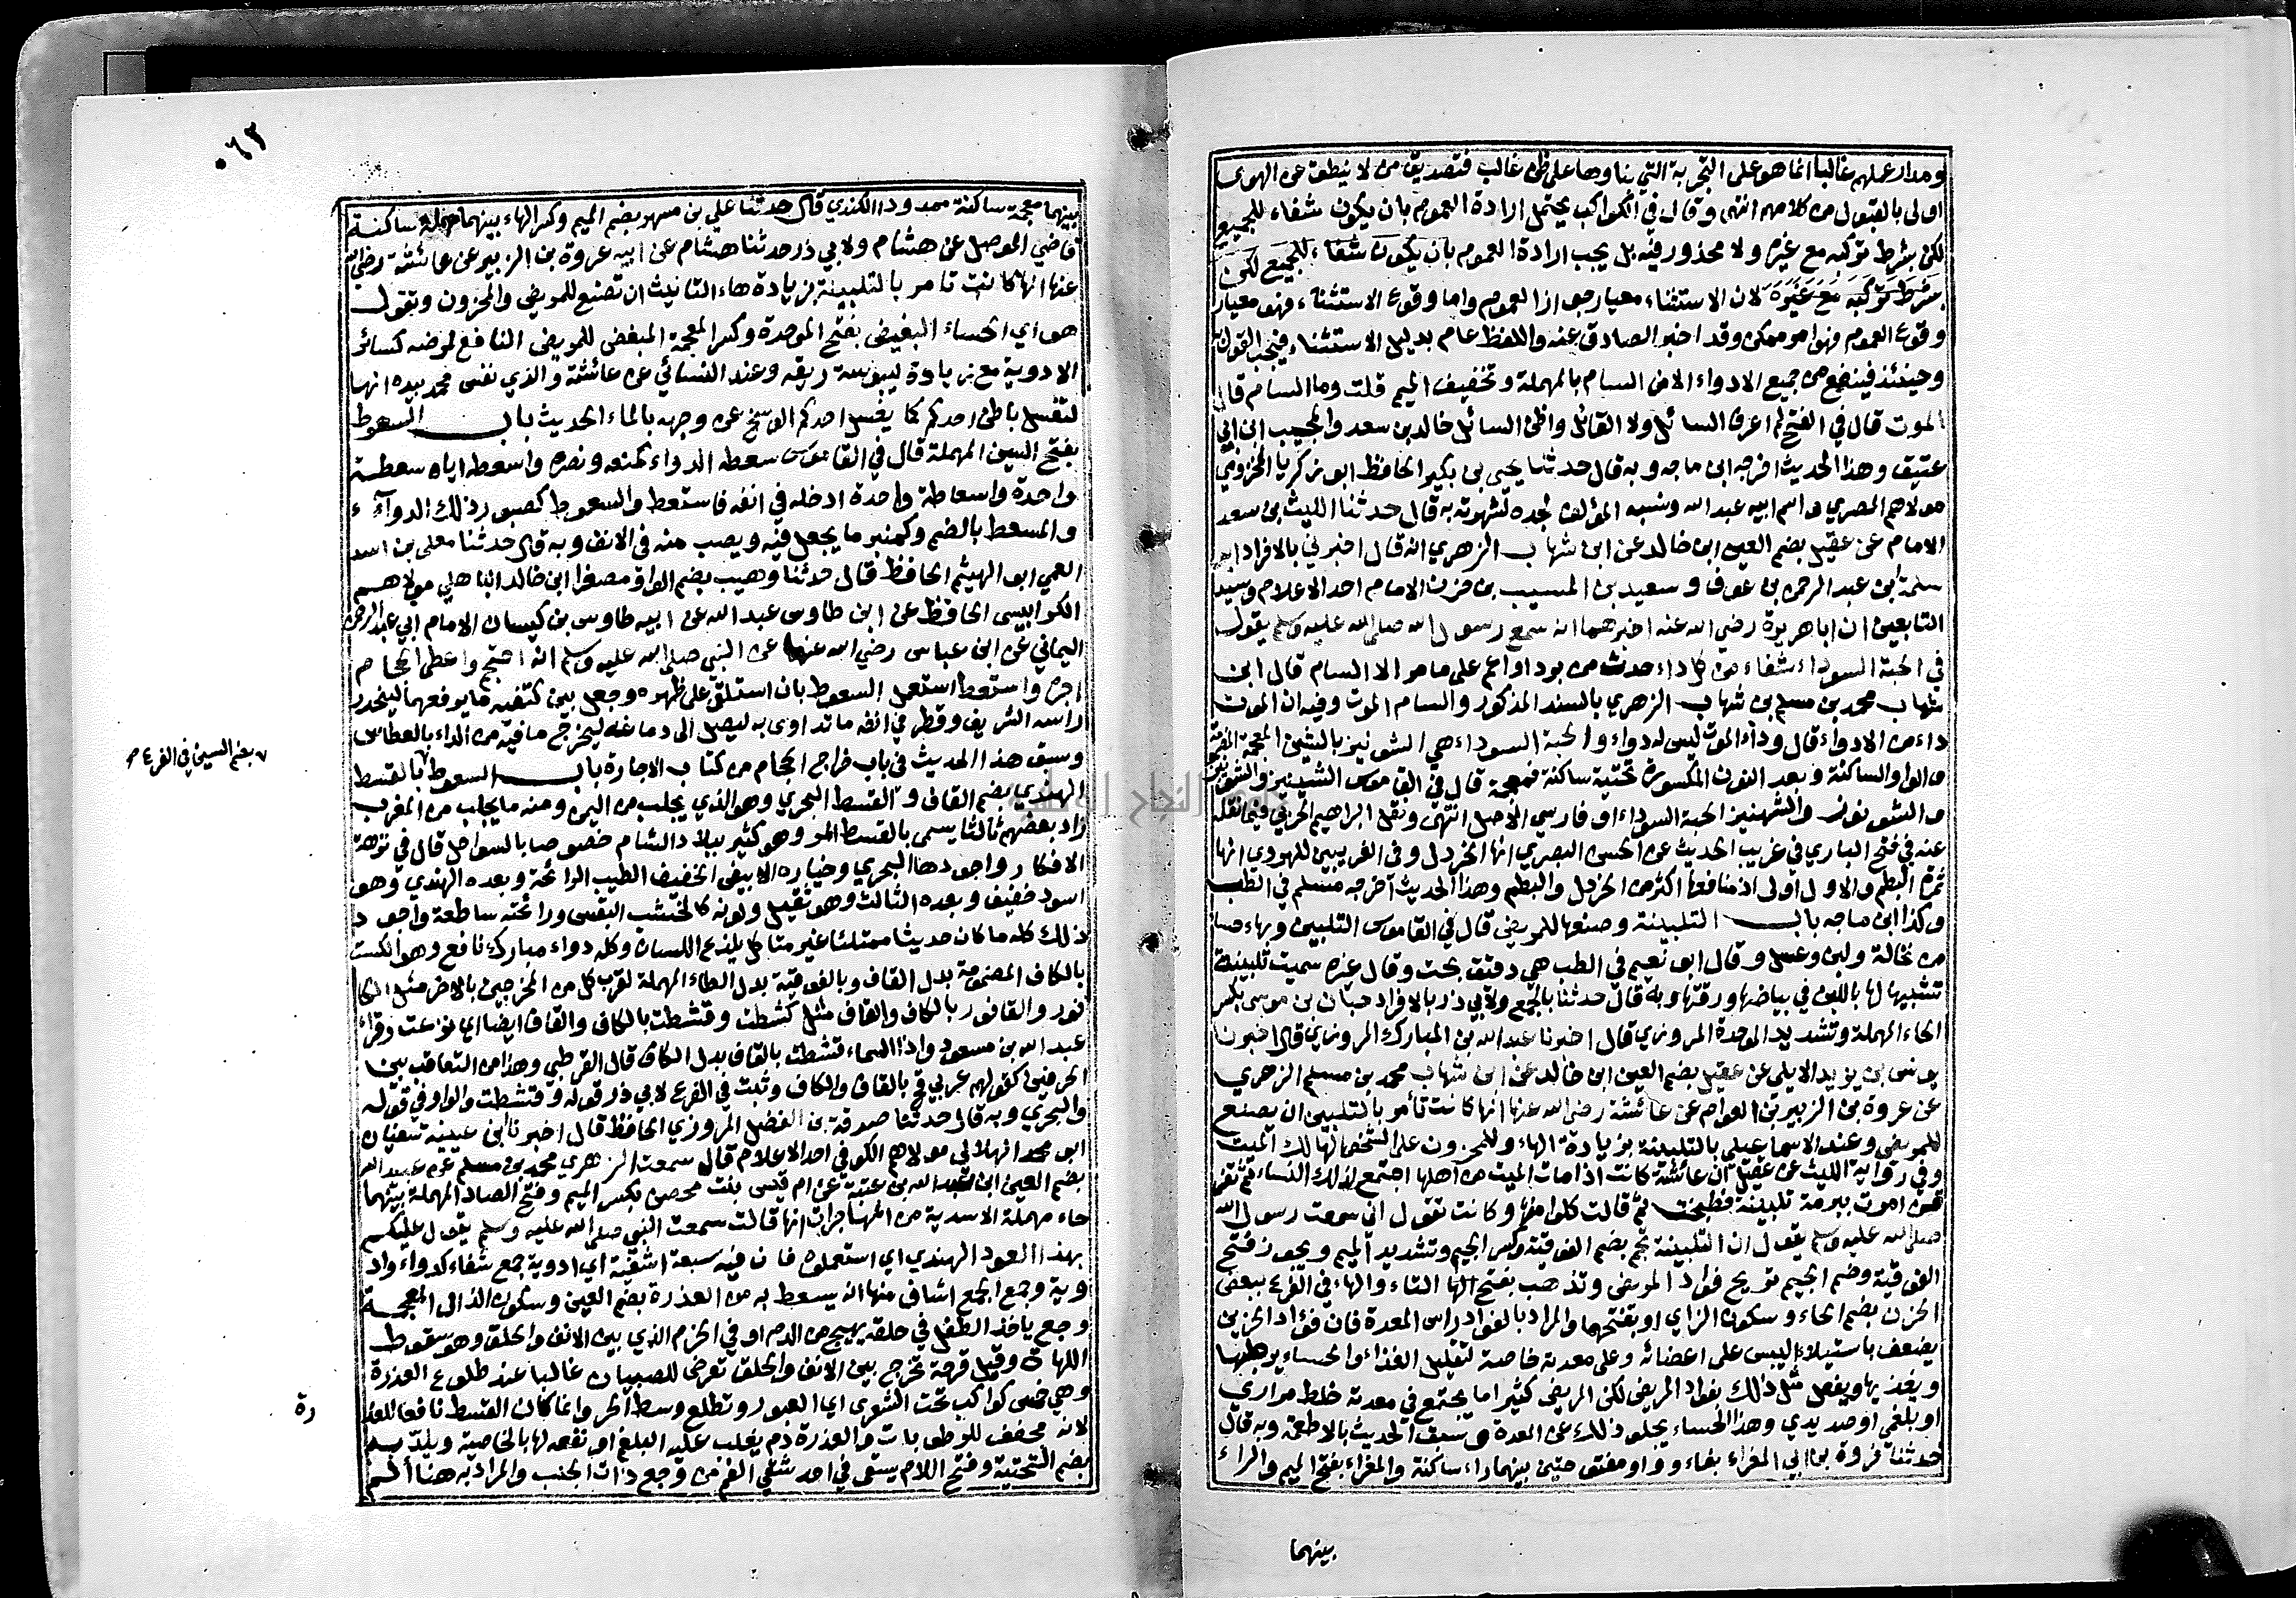 ومدار علمهم غالبا انما هو على التجربة التي بناوها على ظن غالب فتصديق من لا ينطق عن الهوى
اولى بالقبول من كلامهم انتهى وقال في الكواكب يحتمل ارادة العموم بان يكون شفاء للجميع
لكن بشرط تركبه مع غيره ولا محذور فيه بل يجب ارادة العموم بان يكون شفاء للجميع لكن
بشرط تركبه مع غيره لان الاستثناء معيار جواز العموم واما وقوع الاستثناء فهو معيار
وقوع العموم فهو امر ممكن وقد اخبر الصادق عنه واللفظ عام بدليل الاستثناء فيجب القول
وحينئذ فينفع من جميع الادواء الا من السام بالمهملة وتخفيف الميم قلت وما السام قال
الموت قال في الفتح لم اعرف السائل ولا القائل واظن السائل خالد بن سعد والمجيب ابن ابي
عتيق وهذا الحديث اخرجه ابن ماجه وبه قال حدثنا يحيى بن بكير الحافظ ابو زكريا المخزومي
مولاهم المصري واسم ابيه عبد الله ونسبه المؤلف لجده لشهرته به قال حدثنا الليث بن سعد
الامام عن عقيل بضم العين ابن خالد عن ابن شهاب الزهري انه قال اخبرني بالافراد ابو
سلمة بن عبد الرحمن بن عوف وسعيد بن المسيب بن حزن الامام احد الاعلام وسيد
التابعين ان ابا هريرة رضي الله عنه اخبرهما انه سمع رسول الله صلى الله عليه وسلم يقول
في الحبة السوداء شفاء من كل داء حدث من برد او اعم على ما مر الا السام قال ابن
شهاب محمد بن مسلم بن شهاب الزهري بالسند المذكور والسام الموت وفيه ان الموت
داء من الادواء قال وداء الموت ليس له دواء والحبة السوداء هي الشونيز بالشين المعجمة
والواو الساكنة وبعد النون المكسورة تحتية ساكنة فمعجمة قال في القاموس الشينيز والشونيز
والشونوز والشهنيز الحبة السوداء او فارسي الاصل انتهى ونقل ابراهيم الحربي فيما نقله
عنه في فتح الباري في غريب الحديث عن الحسن البصري انها الخردل وفي الغريبين للهروي انها
ثمرة البطم والاول اولى اذ منافعها اكثر من الخردل والبطم وهذا الحديث اخرجه مسلم في الطب
وكذا ابن ماجه باب التلبينة وصنعها للمريض قال في القاموس التلبين وبهاء حساء
من نخالة ولبن وعسل وقال ابو نعيم في الطب هي دقيق بحت وقال غيره سميت تلبينة
تشبيها لها باللبن في بياضها ورقتها وبه قال حدثنا بالجمع ولابي ذر بالافراد حبان بن موسى بكسر
الحاء المهملة وتشديد الموحدة المروزي قال اخبرنا عبد الله بن المبارك المروزي قال اخبرنا
يونس بن يزيد الايلي عن عقيل بضم العين ابن خالد عن ابن شهاب محمد بن مسلم الزهري
عن عروة بن الزبير بن العوام عن عائشة رضي الله عنها انها كانت تأمر بالتلبين ان يصنع
للمريض وعند الاسماعيلي بالتلبينة بزيادة الهاء وللمحزون على الشخص الهالك الميت
وفي رواية الليث عن عقيل ان عائشة كانت اذا مات الميت من اهلها اجتمع لذلك النساء ثم تفرقن
امرت ببرمة تلبينة فطبخت ثم قالت كلوا منها وكانت تقول اني سمعت رسول الله
صلى الله عليه وسلم يقول ان التلبينة تجم بضم الفوقية وكسر الجيم وتشديد الميم ويجوز فتح
الفوقية وضم الجيم تريح فواد المريض وتذهب بفتح الهاء التاء والهاء في الفرع ببعض
الحزن بضم الحاء وسكون الزاي او بفتحهما والمراد بالفواد راس المعدة فان فؤاد الحزين
يضعف باستيلاء اليبس على اعضائه وعلى معدته خاصة لتقليل الغذاء والحساء يرطبها
ويغذيها ويفعل مثل ذلك بفواد المريض لكن المريض كثيرا ما يجتمع في معدته خلط مراري
او بلغمي او صديدي وهذا الحساء يجلو ذلك عن المعدة وسبق الحديث بالاطعمة وبه قال
حدثنا فروة بن ابي المغراء بفاء وواو مفتوحتين بينهما راء ساكنة والمغراء بفتح الميم والراء
بينهما
٠٦٢
بينهما معجمة ساكنة ممدودا الكندي قال حدثنا علي بن مسهر بضم الميم وكسر الهاء بينهما مهملة ساكنة
قاضي الموصل عن هشام ولابي ذر حدثنا هشام عن ابيه عروة بن الزبير عن عائشة رضي الله
عنها انها كانت تامر بالتلبينة بزيادة هاء التانيث ان تصنع للمريض والمحزون وتقول
هو اي الحساء البغيض بفتح الموحدة وكسر المعجمة المبغض للمريض النافع لمرضه كسائر
الادوية مع زيادة ليبوسة ريقه وعند النسائي عن عائشة والذي نفس محمد بيده انها
لتغسل باطن احدكم كما يغسل احدكم الوسخ عن وجهه بالماء الحديث باب السعوط
بفتح السين المهملة قال في القاموس سعطه الدواء كمنعه ونصره واسعطه اياه سعطة
واحدة واسعاطة واحدة ادخله في انفه فاستعط والسعوط كصبور ذلك الدواء
والمسعط بالضم وكمنبر ما يجعل فيه ويصب منه في الانف وبه قال حدثنا معلى بن اسد
العمي ابو الهيثم الحافظ قال حدثنا وهيب بضم الواو مصغرا ابن خالد الباهلي مولاهم
الكرابيسي الحافظ عن ابن طاوس عبد الله عن ابيه طاوس بن كيسان الامام ابي عبد الرحمن
اليماني عن ابن عباس رضي الله عنهما عن النبي صلى الله عليه وسلم انه احتجم واعطى الحجام
اجره واستعط استعمل السعوط بان استلقى على ظهره وجعل بين كتفيه ما يرفعهما لينحدر
راسه الشريف وقطر في انفه ما تداوى به ليصل الى دماغه ليخرج ما فيه من الداء بالعطاس
وسبق هذا الحديث في باب خراج الحجام من كتاب الاجارة باب السعوط بالقسط
٧ بضم السين في الفرع
الهندي بضم القاف والقسط البحري وهو الذي يجلب من اليمن ومنه ما يجلب من المغرب
زاد بعضهم ثالثا يسمى بالقسط المر وهو كثير ببلاد الشام خصوصا بالسواحل قال في نزهة
الافكار واجودها البحري وخياره الابيض الخفيف الطيب الرائحة وبعده الهندي وهو
اسود خفيف وبعده الثالث وهو ثقيل ولونه كالخشب البقس ورائحته ساطعة واجود
ذلك كله ما كان حديثا ممتلئا غير متاكل يلذع اللسان وكله دواء مبارك نافع وهو الكست
بالكاف المضمومة بدل القاف وبالفوقية بدل الطاء المهملة لقرب كل من المخرجين بالاخر مثل الكا
فور والقافور بالكاف والقاف مثل كشطت وقشطت بالكاف والقاف ايضا اي نزعت وقرا
عبد الله بن مسعود واذا السماء قشطت بالقاف بدل الكاف قال القرطبي وهذا من التعاقب بين
الحرفين كقولهم عربي قح بالقاف والكاف وثبت في الفرع لابي ذر قوله وقشطت والواو في قوله
والبحري وبه قال حدثنا صدقة بن الفضل المروزي الحافظ قال اخبرنا ابن عيينة سفيان
ابو محمد الهلالي مولاهم الكوفي احد الاعلام قال سمعت الزهري محمد بن مسلم عن عبيد الله
بضم العين ابن عبد الله بن عتبة عن ام قيس بنت محصن بكسر الميم وفتح الصاد المهملة بينهما
حاء مهملة الاسدية من المهاجرات انها قالت سمعت النبي صلى الله عليه وسلم يقول عليكم
بهذا العود الهندي اي استعملوه فان فيه سبعة اشفية اي ادوية جمع شفاء كدواء واد
وية وجمع الجمع اشاف منها انه يسعط به من العذرة بضم العين وسكون الذال المعجمة
وجع ياخذ الطفل في حلقه يهيج من الدم او في الخرم الذي بين الانف والحلق وهو سقوط
اللهاة وقيل قرحة تخرج بين الانف والحلق تعرض للصبيان غالبا عند طلوع العذرة
وهي خمس كواكب تحت الشعرى اي العبور وتطلع وسط الحر وانما كان القسط نافعا للعذ
رة
لانه مجفف للرطوبات والعذرة دم يغلب عليه البلغم او نفعه لها بالخاصية ويلد به
بضم التحتية وفتح اللام يسقى في احد شقي الفم من وجع ذات الجنب والمراد به هنا الم